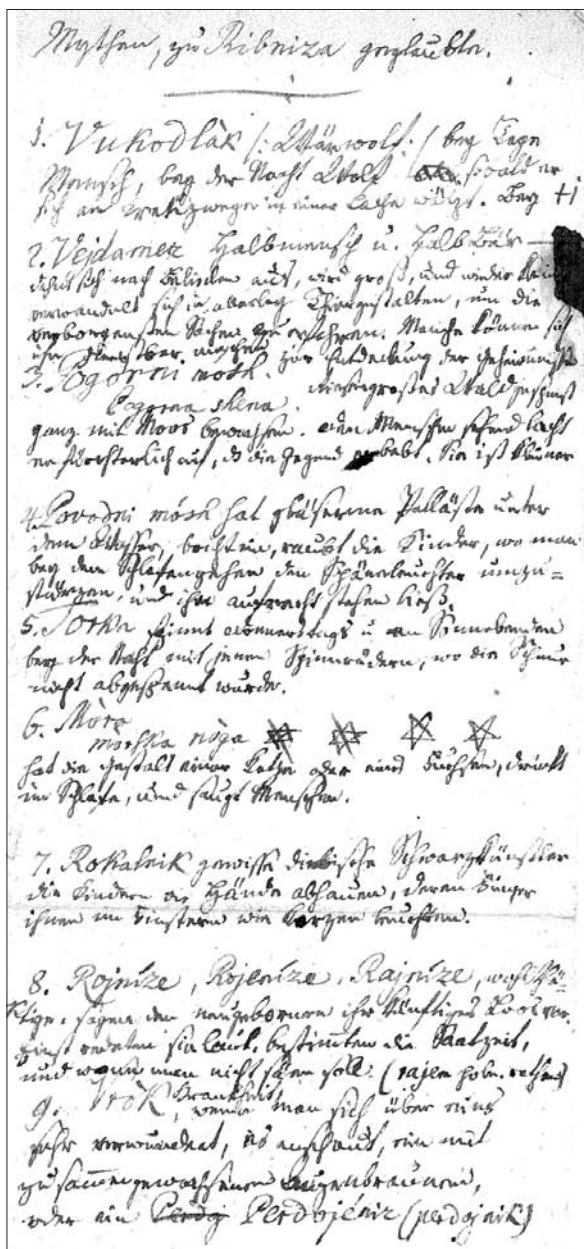 Mythen, zu Ribniza geglaubte.
1. Vukodlàk /: Wärwolf :/ bey Tage
Mensch, bey der Nacht Wolf sobald er
sich am Kreutzwege in einer Lache wälzt. Bey
2. Vejdamez Halbmensch u. Halb Bär
dehnt sich nach Belieben aus, wird groß, und wieder klein
verwandelt sich in allerley Thiergestalten, um die
verborgensten Sachen zu erfahren. Manche können sich
zur Entdeckung der Geheimniße
3. Pogorni mosh. riesengroßes Waldgespenst
Poggorna shena.
ganz mit Moos bewachsen. den Menschen sehend lacht
er fürchterlich auf, daß die Gegend erbebt. Sie ist kleiner
4. Povodni mósh hat gläserne Palläste unter
dem Wasser, raubt die Kinder, wo man
bey dem Schlafengehen den Spänleuchter umzu=
stürzen, und ihn aufrecht stehen ließ.
5. Torka spinnt Donnerstags u. an Sonnabenden
bey der Nacht mit jenen Spinnrädern, wo die Schnur
nicht abgespannt wurde.
6. Mòra
mòshka nòga
hat die Gestalt einer Katze oder eines Fuchsen, drückt
im Schlafe, und saugt Menschen.
7. Rokalnik gewisse diebische Schwarzkünstler
die Kindern die Hände abhauen, deren Finger
ihnen im Finstern wie Kerzen leuchten.
8. Rojnìze, Rojenìze, Rajnìze,
sagen den neugebornen ihr künftiges Loos vor.
Einst redeten sie laut, bestimmten die Saatzeit,
und wann man nicht säen soll. (rajem
9. Vrók, Krankheit, wenn man sich über uns
sehr verwundert, es anschaut, ein mit
zusammengewachsenen Augenbraunen,
oder ein Perdojéniz (perdojnik)